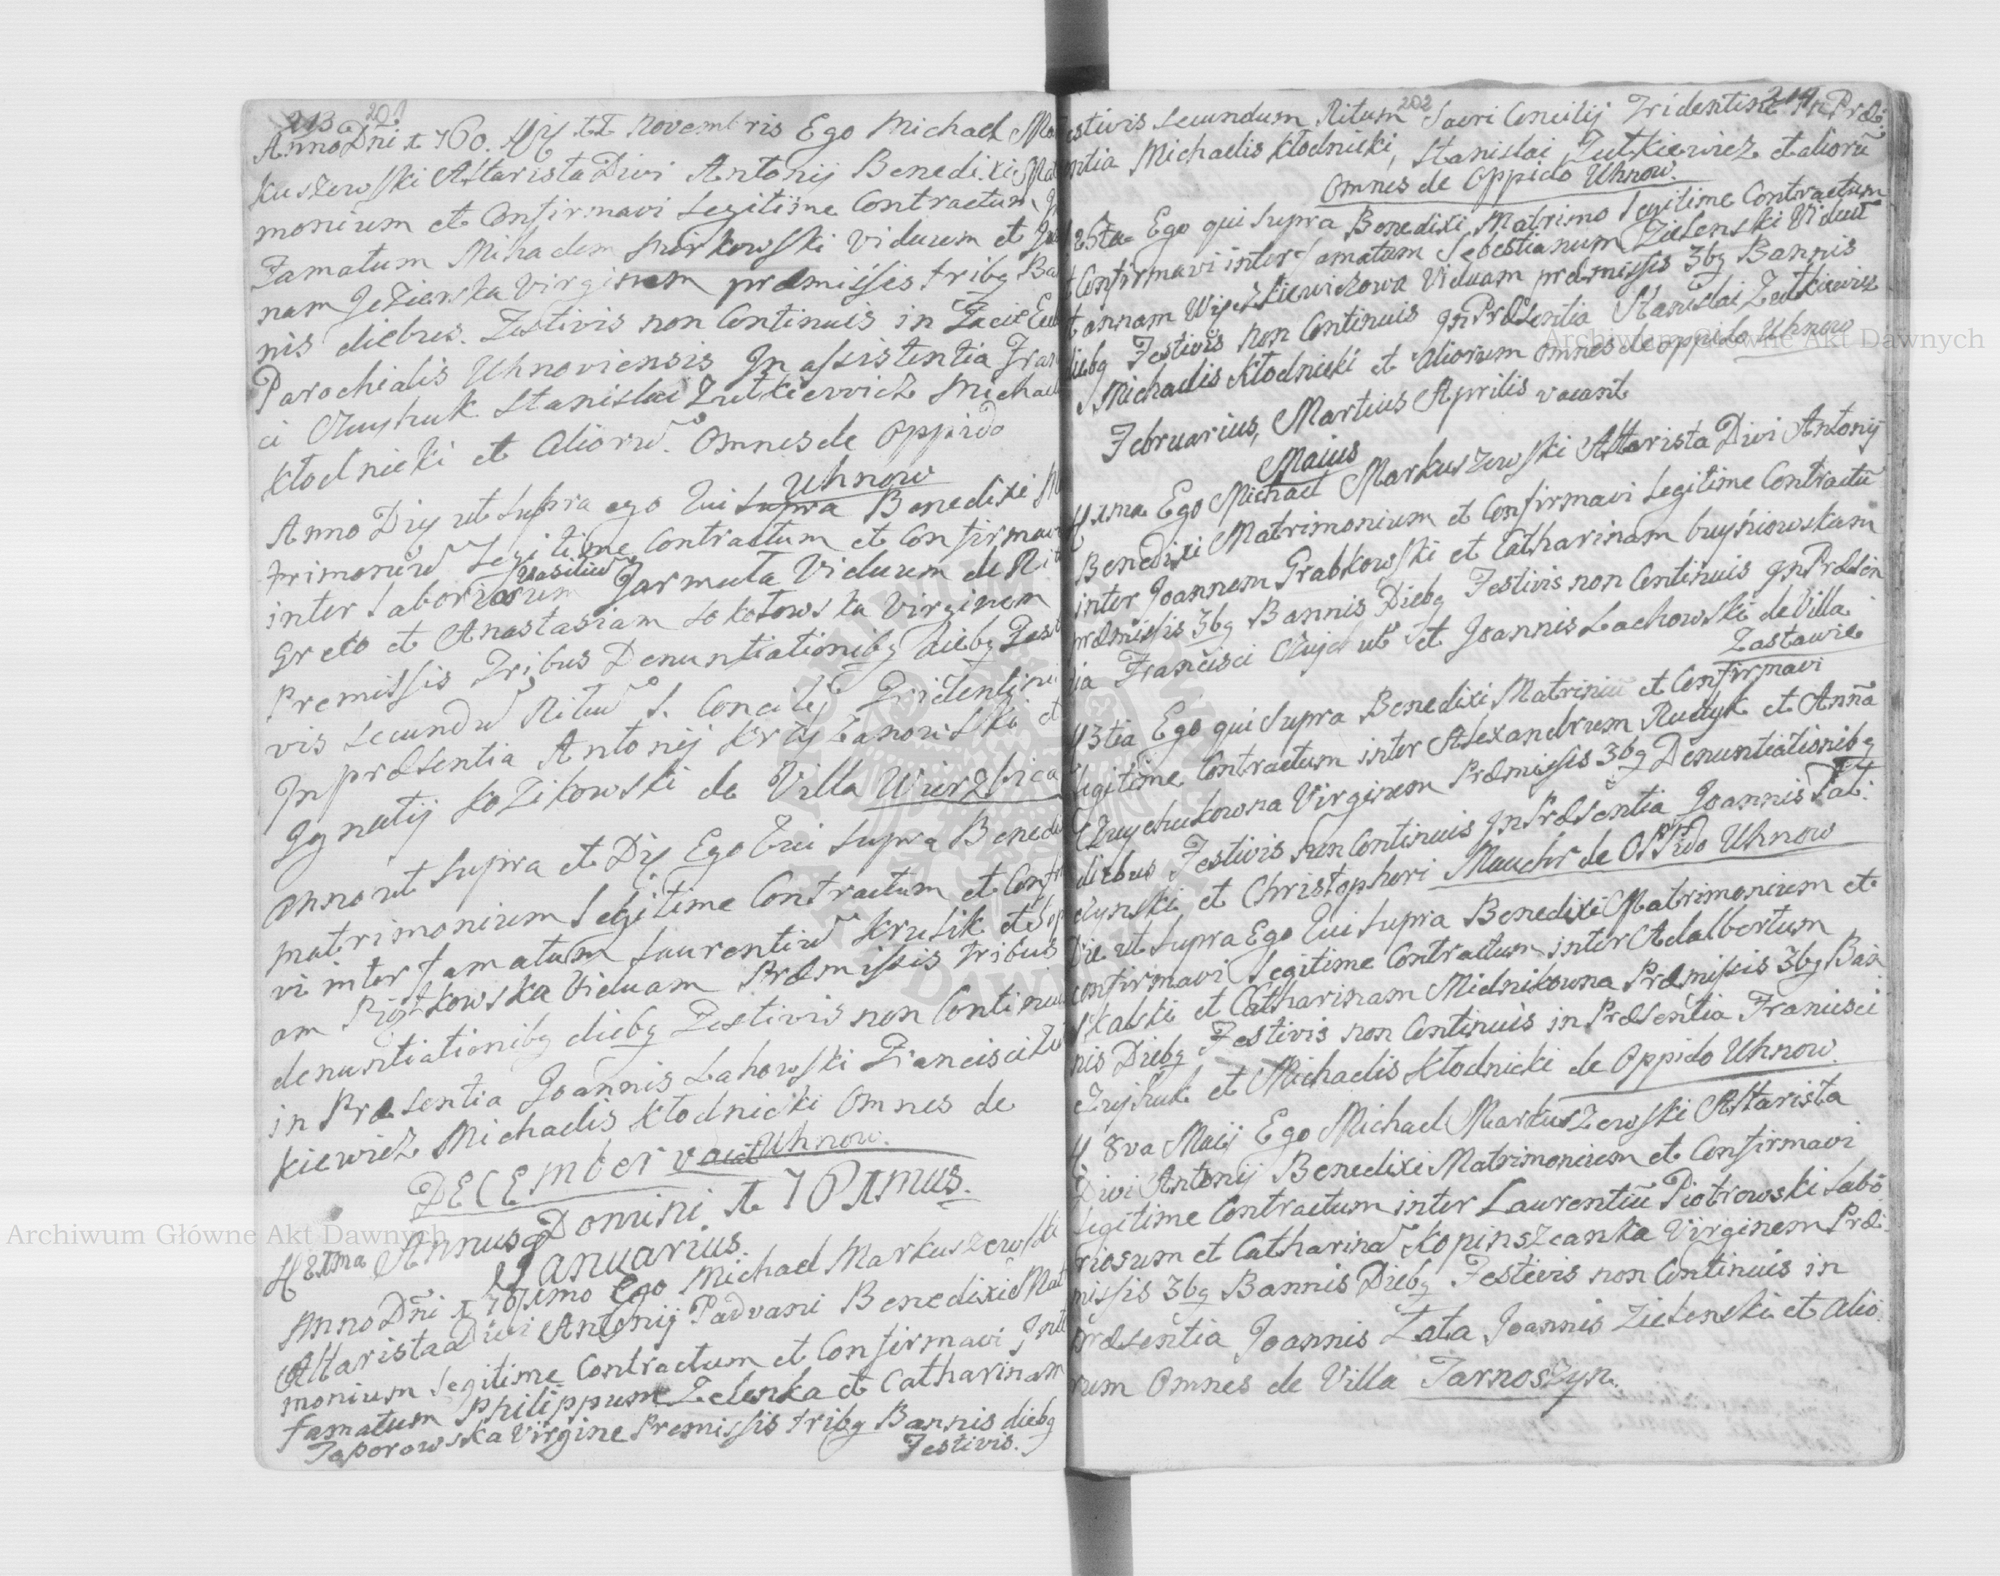 213 201
Anno Dni 1760. H 11 Novembris Ego Michael Ma
kuszowski Altarista Divi Antonij Benedixi Ma
monium et Confirmavi Legitime Contractum
Famatum Mihadem Viduum et
nam Jezierska Virginem præmissis tribq Ba
nis diebus. Festivis non Continuis in Facie Eccl
Parochialis Uhnoviensis In assistentia Fran
ci Czuyhuk Stanislai Zutkiewicz Michael
Kłodnicki et Alioru. Omnes de Oppido
Uhnow
Anno Dig ut Supra ego Qui Supra Benedixi M
trimoniu Legitime Contractum et Confirmavi
inter Laboriosum Wasiliu Jarmuta Viduum de Rit
Greco et Anastasiam Sokołowska Virginem
Premissis Tribus Denuntiationibq diebq Festi
vis Secundu Ritu S. Concilij Tridentini
In præsentia Antonij Krzyżanowski et
Ignatij Kozikowski de Villa Wierzbica
Anno ut Supra et Dig Ego Qui Supra Bened
matrimonium Legitime Contractum et Conf
vi inter Famatum Laurentiu Krusik et
am Piotrkowska Viduam Præmissis tribus
denuntiationibq diebq Festivis non Continu
in Præsentia Joannis Lahowski Francisci
kiewicz Michaelis Kłodnicki Omnes de
Uhnow.
DECEMber vacat
Annus Domini 1761mus.
Januarius.
H 21ma
Anno Dni 1761mo Ego Michael Markuszewski
Altarista Divi Antonij Padvani Benedixi Mat
monium Legitime Contractum et Confirmavi Int
famatum Philippum Zelenka et Catharinam
Toporowska Virgine Premissis tribq Bannis diebq
Festivis.
202 214
estivis secundum Ritum Sacri Concilij Tridentini In Præ:
entia Michaelis Kłodnicki, Stanislai Zutkiewicz et alioru
Omnes de Oppido Uhnow.
H 25ta Ego qui Supra Benedixi Matrimo Legitime Contractum
t Confirmavi inter Famatum Sebestianum Zielenski Viduu
t annam Viduam præmissis 3bq Bannis
diebq Festivis non Continuis In Præsentia Stanislai Zutkiewicz
Michaelis Kłodnicki et Aliorum omnes de oppido Uhnow
Februarius, Martius Aprilis vacant
Maius
H 1ma Ego Michael Markuszowski Altarista Divi Antonij
Benedixi Matrimonium et Confirmavi Legitime Contractu
inter Joannem Grabkowski et Catharinam buyniowskam
præmissis 3bq Bannis Diebq Festivis non Continuis In Præsen
tia Francisci et Joannis Lachowski de Villa
Zastawie
H 3tia Ego qui Supra Benedixi Matriniu et Confirmavi
Legitime Contractum inter Alexandrum Rudyk et Anna
Czuychukowna Virginem Præmissis 3bq Denuntiationibq
diebus Festivis non Continuis In Præsentia Joannis Tat:
czynski et Christophori Mauchr de Oppido Uhnow
Die ut Supra Ego Qui Supra Benedixi Matrimonium et
Confirmavi Legitime Contractum inter Adalbertum
Skalski et Catharinam Mielnikowna Præmissis 3bq Ban
nis Diebq Festivis non Continuis in Præsentia Francisci
Czuyhuk et Michaelis Kłodnicki de Oppido Uhnow.
H 8va Maij Ego Michael Markuszewski Altarista
Divi Antonij Benedixi Matrimonium et Confirmavi
Legitime Contractum inter Laurentiu Piotrowski Labo
riosum et Catharina Kopinszczanka Virginem Præ:
missis 3bq Bannis Diebq Festivis non Continuis in
Præsentia Joannis Łata Joannis Zielenski et Alio:
rum Omnes de Villa Tarnoszyn.
Archiwum Główne Akt Dawnych
Archiwum Główne Akt Dawnych